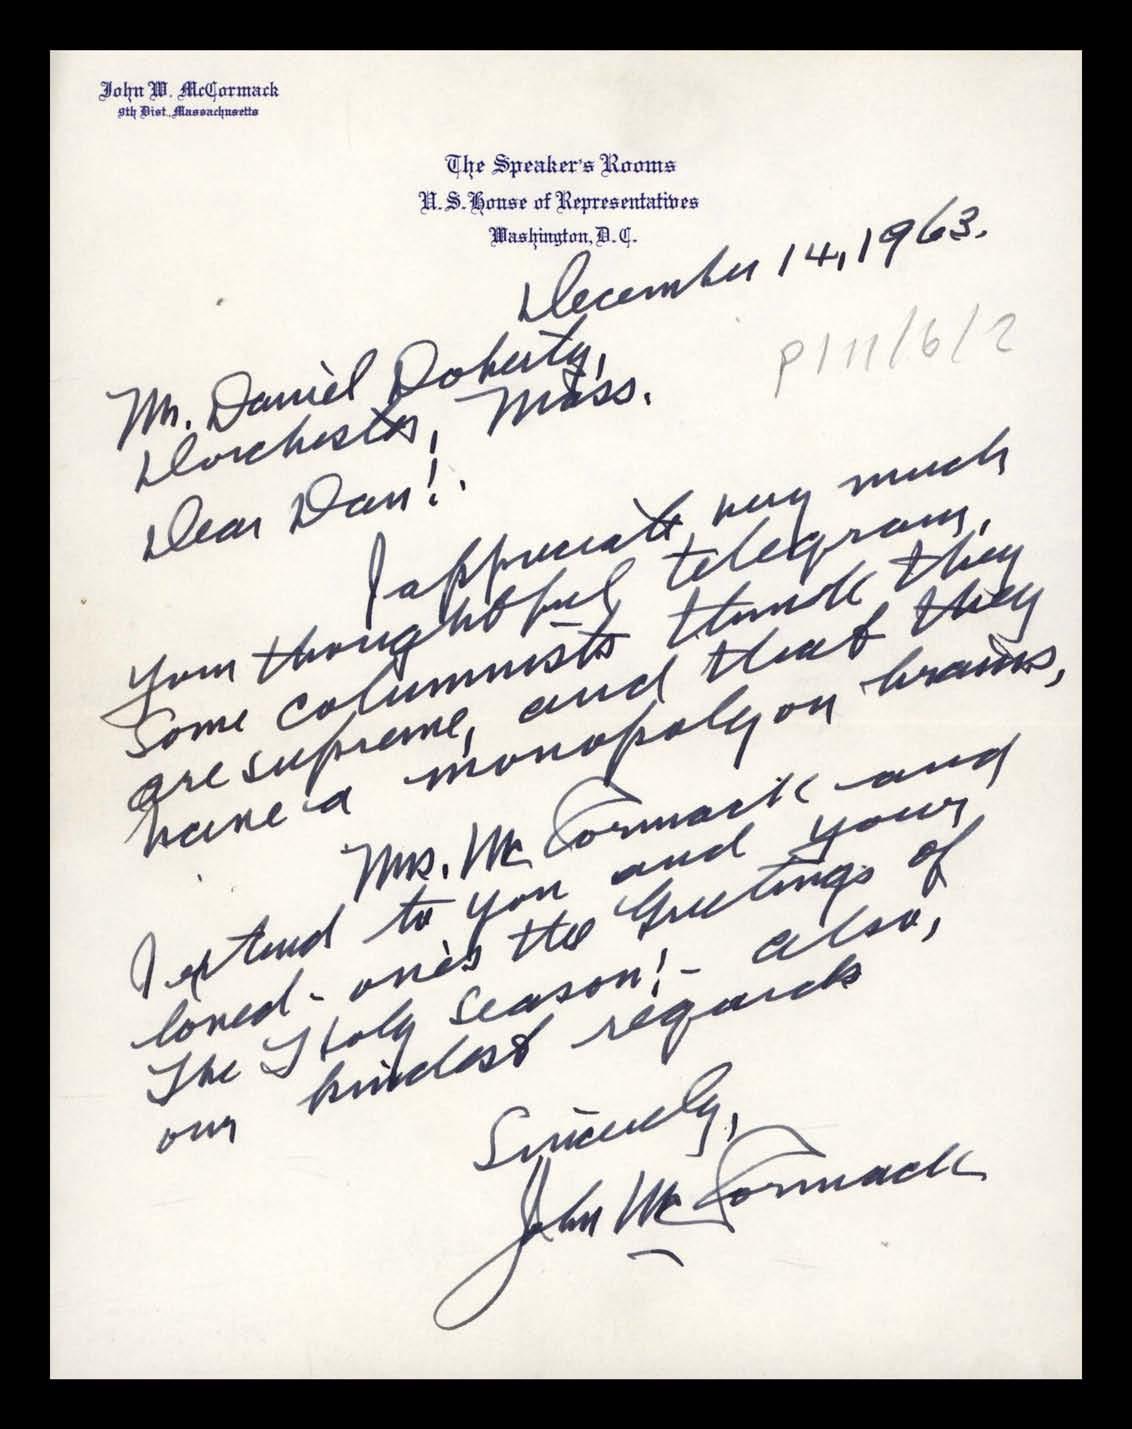 John W. McCormack
9th Dist., Massachusetts
The Speaker's Rooms
U.S. House of Representatives
Washington, D.C.
December 14, 1963.
P/11/6/2
Mr. Daniel Doherty,
Dorchester, Mass.
Dear Dan!.
I appreciate very much
your thoughtful telegram.
Some columnists think they
are supreme, and that they
have a monopoly on brains.
Mrs. McCormack and
I extend to you and your
loved-ones the Greetings of
The Holy Season! - also,
our kindest regards
Sincerely,
John McCormack